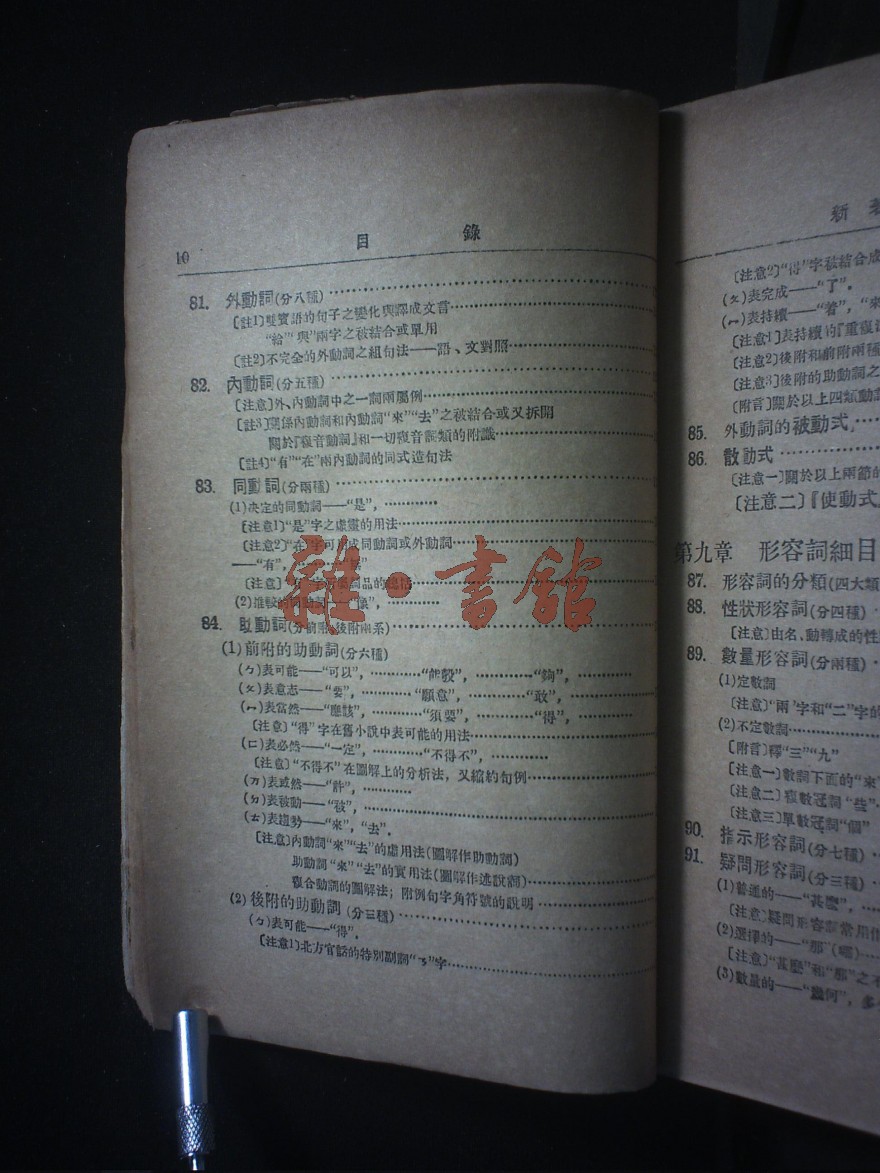 10 目錄
81. 外動詞(分八種)
〔註1〕雙賓語的句子之變化與譯成文言
“給”“與”兩字之被結合或單用
〔註2〕不完全的外動詞之組句法——語、文對照
82. 內動詞(分五種)
〔注意〕外、內動詞中之一詞兩屬例
〔註3〕關係內動詞和內動詞“來”“去”之被結合或又拆開
關於『複音動詞』和一切複音詞類的附識
〔註4〕“有”“在”兩內動詞的同式造句法
83. 同動詞(分兩種)
(1)決定的同動詞——“是”,
〔注意1〕“是”字之虛靈的用法
〔注意2〕“在”字可用成同動詞或外動詞
——“有”,
〔注意〕
(2)推較的同動詞
84. 助動詞(分前附、後附兩系)
(1)前附的助動詞(分六種)
(ㄅ)表可能——“可以”, “能彀”, “夠”,
(ㄆ)表意志——“要”, “願意”, “敢”,
(ㄇ)表當然——“應該”, “須要”, “得”,
〔注意〕“得”字在舊小說中表可能的用法
(ㄈ)表必然——“一定”, “不得不”,
〔注意〕“不得不”在圖解上的分析法,又縮約句例
(ㄉ)表或然——“許”,
(ㄉ)表被動——“被”,
(ㄊ)表趨勢——“來”,“去”。
〔注意〕內動詞“來”“去”的虛用法(圖解作助動詞)
助動詞“來”“去”的實用法(圖解作述說詞)
複合動詞的圖解法;附例句字角符號的說明
(2)後附的助動詞(分三種)
(ㄅ)表可能——“得”,
〔注意1〕北方官話的特別副詞“ㄋ”字
新
〔注意2〕“得”字被結合成
(ㄆ)表完成——“了”。
(ㄇ)表持續——“着”,“來
〔注意1〕表持續的『重複
〔注意2〕後附和前附兩種
〔注意3〕後附的助動詞之
〔附言〕關於以上四類動詞
85. 外動詞的被動式
86. 散動式
〔注意一〕關於以上兩節的
〔注意二〕『使動式』
第九章 形容詞細目
87. 形容詞的分類(四大類
88. 性狀形容詞(分四種)
〔注意〕由名、動轉成的性
89. 數量形容詞(分兩種)
(1)定數詞
〔注意〕“兩”字和“二”字的
(2)不定數詞
〔附言〕釋“三”“九”
〔注意一〕數詞下面的“來”
〔注意二〕複數冠詞“些”
〔注意三〕單數冠詞“個”
90. 指示形容詞(分七種)
91. 疑問形容詞(分三種)
(1)普通的——“甚麼”,
〔注意〕疑問形容詞常用作
(2)選擇的——“那”(哪)
〔注意〕“甚麼”和“那”之不
(3)數量的——“幾何”,多
雜·書館